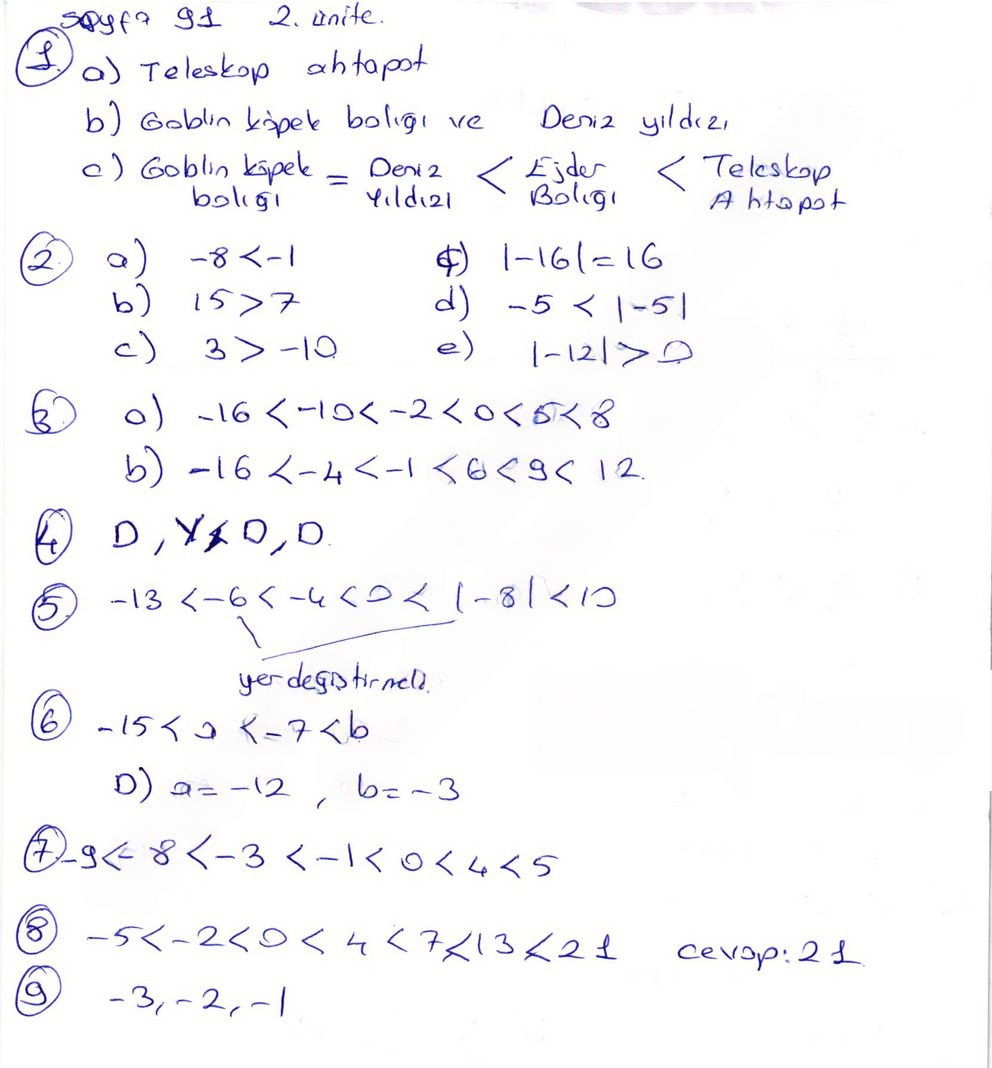 Sayfa 91 2. ünite.
1 a) Teleskop ahtapot
b) Goblin köpek balığı ve Deniz yıldızı
c) Goblin köpek balığı = Deniz Yıldızı < Ejder Balığı < Teleskop Ahtapot
2 a) -8 < -1 ç) |-16| = 16
b) 15 > 7 d) -5 < |-5|
c) 3 > -10 e) |-12| > 0
3 a) -16 < -10 < -2 < 0 < 5 < 8
b) -16 < -4 < -1 < 6 < 9 < 12.
4 D, Y, D, D.
5 -13 < -6 < -4 < 0 < |-8| < 10
yer değiştirmeli.
6 -15 < a < -7 < b
D) a = -12, b = -3
7 -9 < -8 < -3 < -1 < 0 < 4 < 5
8 -5 < -2 < 0 < 4 < 7 < 13 < 21 cevap: 21
9 -3, -2, -1